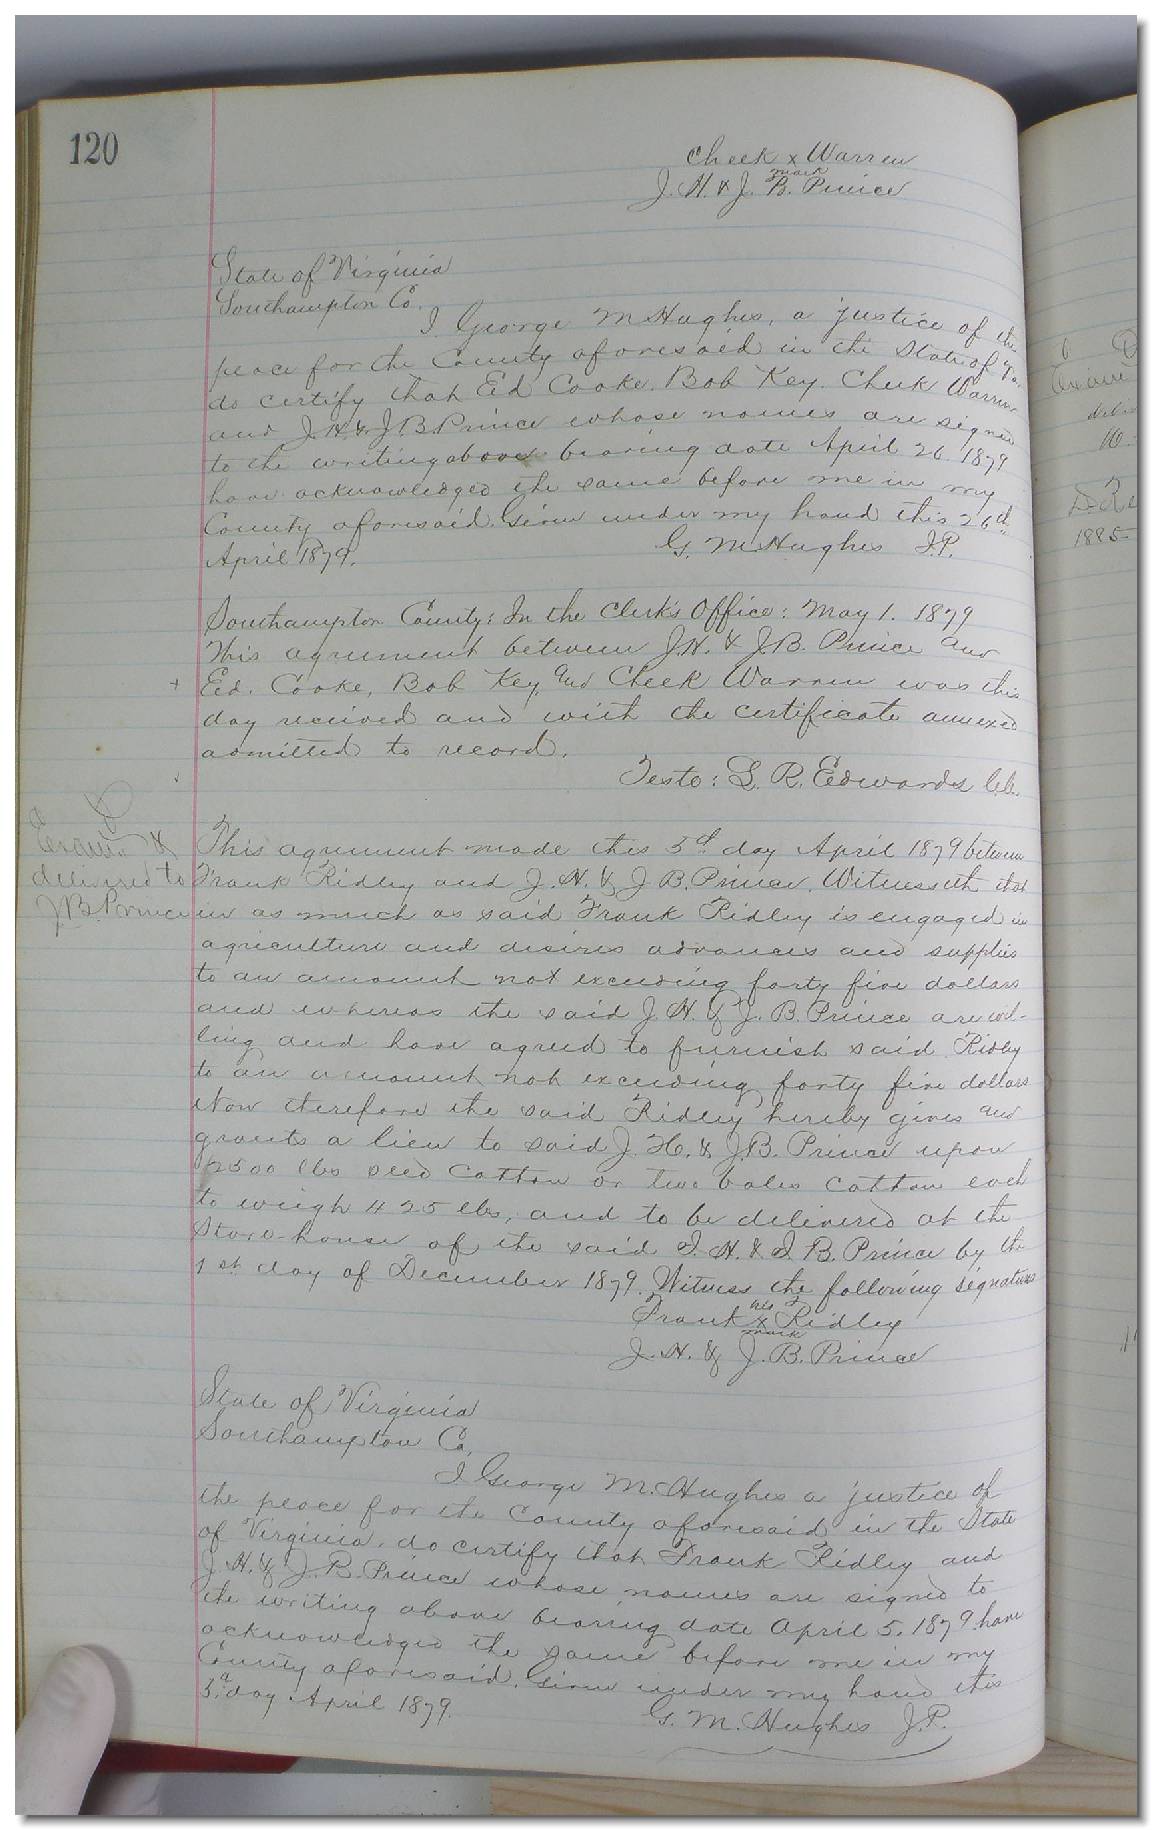 120
Cheek x Warren
mark
J. H. & J. B. Prince
State of Virginia
Southampton Co.
I George M Hughes, a justice of the
peace for the County aforesaid in the State of Va.
do certify that Ed Cooke. Bob Key. Cheek Warren
and J. H. & J. B Prince whose names are signed
to the writing above bearing date April 26 1879
have acknowledged the same before me in my
County aforesaid. Given under my hand this 26d
April 1879.
G. M Hughes J.P.
Southampton County: In the Clerk's Office: May 1. 1879
This agreement between J. H. & J. B. Prince and
+ Ed. Cooke, Bob Key, and Cheek Warren was this
day received and with the certificate annexed
admitted to record.
Teste: L. R. Edwards Clk.
Exam. &
delivered to
J B Prince
This agreement made this 5d day April 1879 between
Frank Ridley and J. H. & J B. Prince, Witnesseth that
in as much as said Frank Ridley is engaged in
agriculture and desires advances and supplies
to an amount not exceeding forty five dollars
and whereas the said J. H. & J. B. Prince are wil-
ling and have agreed to furnish said Ridley
to an amount not exceeding forty five dollars
Now therefore the said Ridley hereby gives and
grants a lien to said J. H. & J. B. Prince upon
2500 lbs seed Cotton or two bales Cotton each
to weigh 425 lbs, and to be delivered at the
Store-house of the said J. H. & J. B. Prince by the
1st day of December 1879. Witness the following signatures
his
Frank x Ridley
mark
J. H. & J. B. Prince
State of Virginia
Southampton Co.
I George M. Hughes a justice of
the peace for the County aforesaid in the State
of Virginia, do certify that Frank Ridley and
J. H. & J. B. Prince whose names are signed to
the writing above bearing date April 5. 1879 have
acknowledged the same before me in my
County aforesaid. Given under my hand this
5.d day April 1879.
G. M. Hughes J. P.
1885